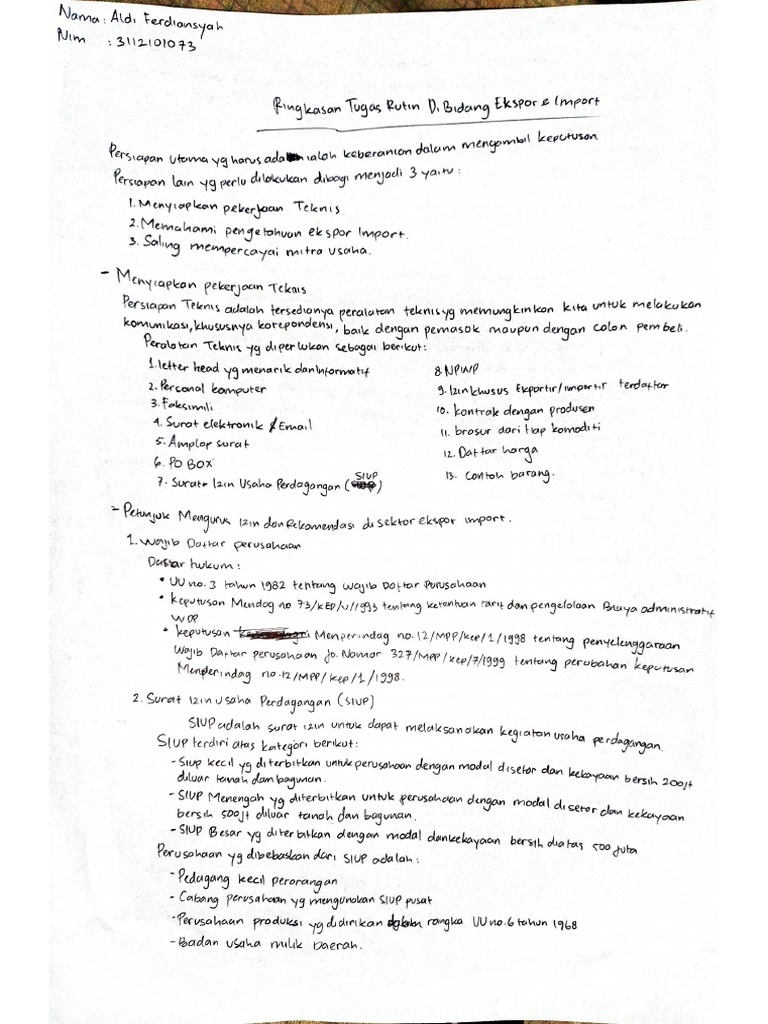 Nama : Aldi Ferdiansyah
Nim : 3112101073
Ringkasan Tugas Rutin Di Bidang Ekspor & Import
Persiapan utama yg harus ada ialah keberanian dalam mengambil keputusan
Persiapan lain yg perlu dilakukan dibagi menjadi 3 yaitu :
1. Menyiapkan pekerjaan Teknis
2. Memahami pengetahuan ekspor Import.
3. Saling mempercayai mitra usaha.
- Menyiapkan pekerjaan Teknis
Persiapan Teknis adalah tersedianya peralatan teknis yg memungkinkan kita untuk melakukan
komunikasi, khususnya korepondensi, baik dengan pemasok maupun dengan calon pembeli.
Peralatan Teknis yg diperlukan sebagai berikut:
1. letter head yg menarik dan Informatif
2. Personal komputer
3. Faksimili
4. Surat elektronik / Email
5. Amplop surat
6. PO BOX
7. Surat Izin Usaha Perdagangan (SIUP)
8. NPWP
9. Izin khusus Eksportir/importir terdaftar
10. kontrak dengan produsen
11. brosur dari tiap komoditi
12. Daftar harga
13. Contoh barang.
- Petunjuk Mengurus izin dan Rekomendasi di sektor ekspor import.
1. Wajib Daftar perusahaan
Dasar hukum :
• UU no. 3 tahun 1982 tentang Wajib Daftar Perusahaan
• Keputusan Mendag no 73/KEP/V/1993 tentang ketentuan tarif dan pengelolaan Biaya administratif
WDP
• keputusan Menperindag no. 12/MPP/kep/1/1998 tentang penyelenggaraan
Wajib Daftar perusahaan Jo. Nomor 327/MPP/kep/7/1999 tentang perubahan keputusan
Menperindag no.12/MPP/kep/1/1998.
2. Surat Izin Usaha Perdagangan (SIUP)
SIUP adalah surat izin untuk dapat melaksanakan kegiatan usaha perdagangan.
SIUP terdiri atas kategori berikut:
- Siup kecil yg diterbitkan untuk perusahaan dengan modal disetor dan kekayaan bersih 200jt
diluar tanah dan bagunan.
- SIUP Menengah yg diterbitkan untuk perusahaan dengan modal disetor dan kekayaan
bersih 500jt diluar tanah dan bagunan.
- SIUP Besar yg diterbitkan dengan modal dan kekayaan bersih diatas 500 juta
Perusahaan yg dibebaskan dari SIUP adalah :
- Pedagang kecil perorangan
- Cabang perusahaan yg mengunakan SIUP pusat
- Perusahaan produksi yg didirikan dalam rangka UU no. 6 tahun 1968
- Badan usaha milik Daerah.